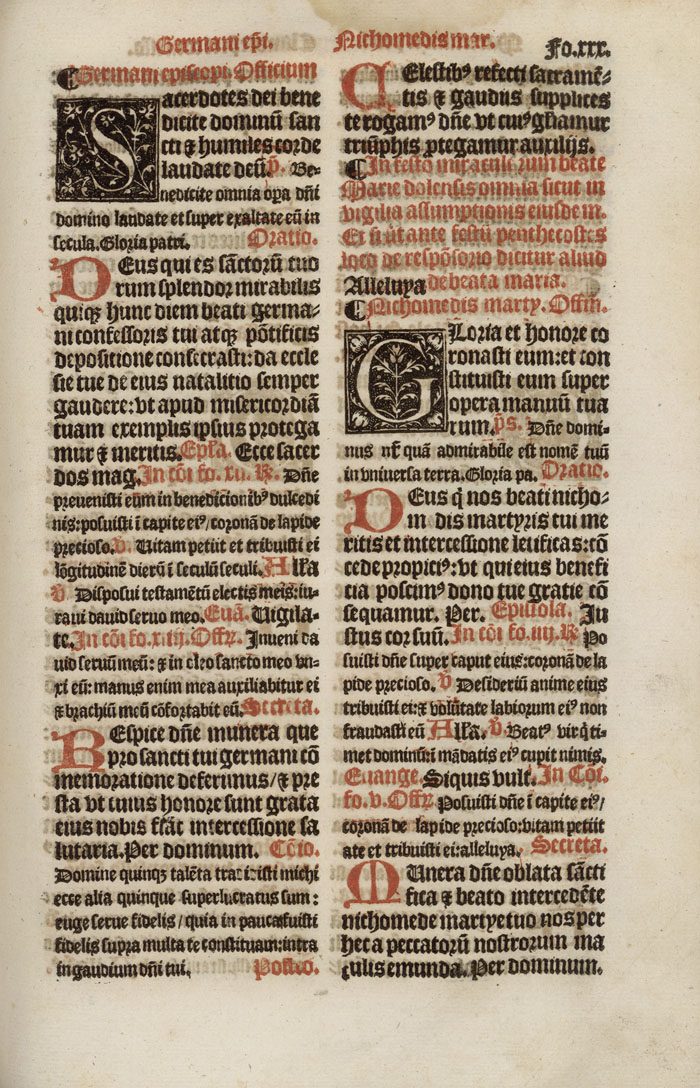 Germani epi.
Nichomedis mar.
Fo.xxx.
Germani episcopi Officium
Sacerdotes dei bene
dicite dominū san
cti & humiles corde
laudate deū. p̄. Be-
nedicite omnia oꝑa dn̄i
domino laudate et super exaltate eū in
secula. Gloria patri. Oratio.
DEus qui es sāctorū tuo
rum splendor mirabilis
quiqꝫ hunc diem beati germa-
ni confessoris tui atqꝫ pōtificis
depositione consecrasti: da eccle
sie tue de eius natalitio semper
gaudere: vt apud misericordiā
tuam exemplis ipsius protega
mur & meritis. Epl̄a. Ecce sacer
dos mag. In cōi fo. xii. R. Dn̄e
prevenisti eum in benedicionibꝰ dulcedi
nis: posuisti ī capite eiꝰ/ coronā de lapide
precioso. v. Uitam petiit et tribuisti ei
lōgitudinē dierū ī seculū seculi. All'a
v. Disposui testamētū electis meis: iu-
raui dauid seruo meo. Euā. Vigila-
te. In cōi fo. xiii. Offr̄. Inueni da
uid seruū meū: & in oleo sancto meo vn-
xi eū: manus enim mea auxiliabitur ei
& brachiū meū cōfortabit eū. Secreta.
REspice dn̄e munera que
pro sancti tui germani cō
memoratione deferimus/ & pre
sta vt cuius honore sunt grata
eius nobis fiāt intercessione sa
lutaria. Per dominum. Cōio.
Domine quinqꝫ talēta tradidisti michi
ecce alia quinque superlucratus sum:
euge serue fidelis/ quia in pauca fuisti
fidelis supra multa te constituam: intra
in gaudium dn̄i tui. Postco.
CElestibꝰ refecti sacramē-
tis & gaudiis supplices
te rogamꝰ dn̄e vt cuiꝰ gl̄iamur
triūphis ꝓtegamur auxiliis.
In festo miraculorum beate
Marie dolensis omnia sicut in
vigilia assumptionis eiusde m.
Et si sit ante festū penthecostes
loco de respōsorio dicitur aliud
Alleluya de beata maria.
Nichomedis marty. Offm̄.
GLoria et honore co
ronasti eum: et con
stituisti eum super
opera manuū tua
rum. ps. Dn̄e domi-
nus nr̄ quā admirabile est nomē tuū
in vniversa terra. Gloria pa. Oratio.
DEus q̄ nos beati nicho-
m dis martyris tui me
ritis et intercessione letificas: cō
cede propiciꝰ: vt qui eius benefi
cia poscimꝰ dono tue gratie cō
sequamur. Per. Epistola. Ju
stus cor suū. In cōi fo. iiij. R̄ Po
suisti dn̄e super caput eius: coronā de la
pide precioso. v̄ Desideriū anime eius
tribuisti ei: & volūtate labiorum eiꝰ non
fraudasti eū All'a. v̄. Beatꝰ vir q̄ ti-
met dominū: ī mādatis eiꝰ cupit nimis.
Euange. Siquis vult. In Cōi.
fo. v. Offr̄ Posuisti dn̄e ī capite eiꝰ/
coronā de lapide precioso: vitam petiit
a te et tribuisti ei: alleluya. Secreta.
MUnera dn̄e oblata sācti
fica & beato intercedēte
nichomede martyre tuo nos per
hec a peccatorū nostrorum ma
culis emunda. Per dominum.